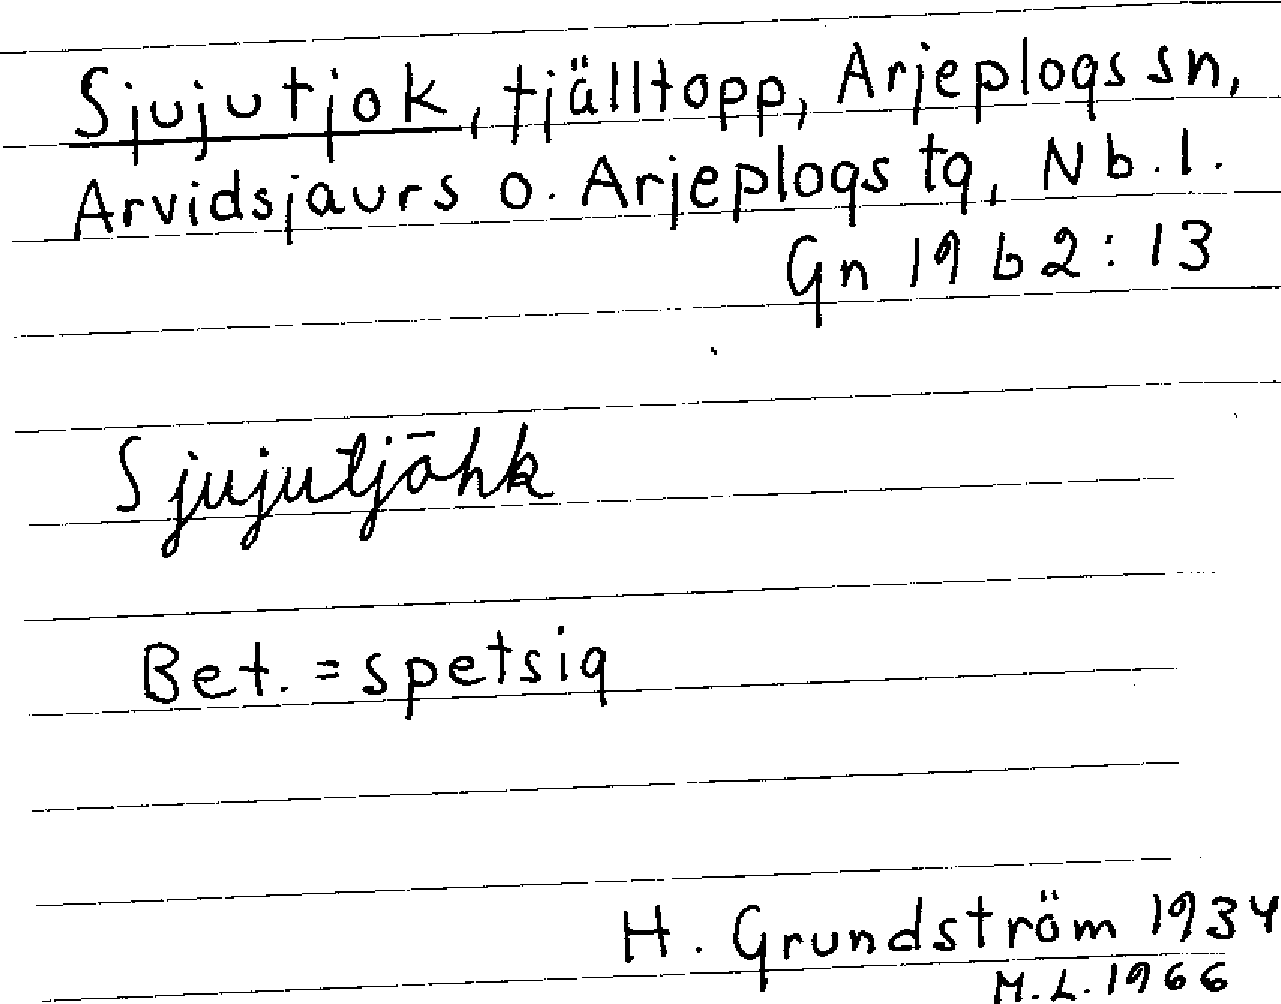 Sjujutjok, fjälltopp, Arjeplogs sn,
Arvidsjaurs o. Arjeplogs tg, Nb. l.
Gn 19 b 2 : 13
Sjujutjåhk
Bet. = spetsig
H. Grundström 1934
M. L. 1966